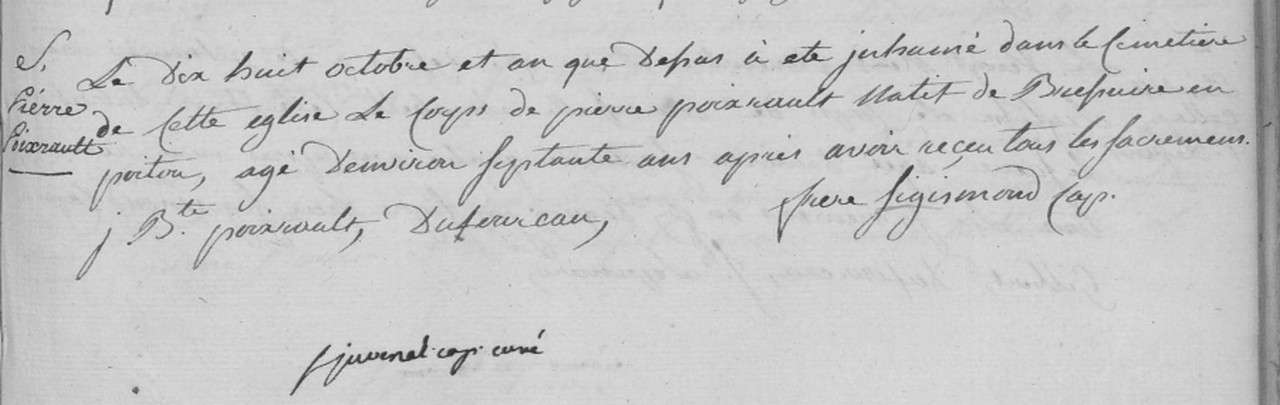 S.
Pierre
Poixrault
Le Dix huit octobre et an que Dessus à eté juhumé dans le Cimetiere
de Cette eglise Le Corps de pierre poixrault Natif de Bressuire en
poitou, agé Denviron septante ans aprés avoir reçeu tous les sacremens.
j B.te poixrault, Dufourcau, frere Sigismond Cap.
f juvenal cap curé